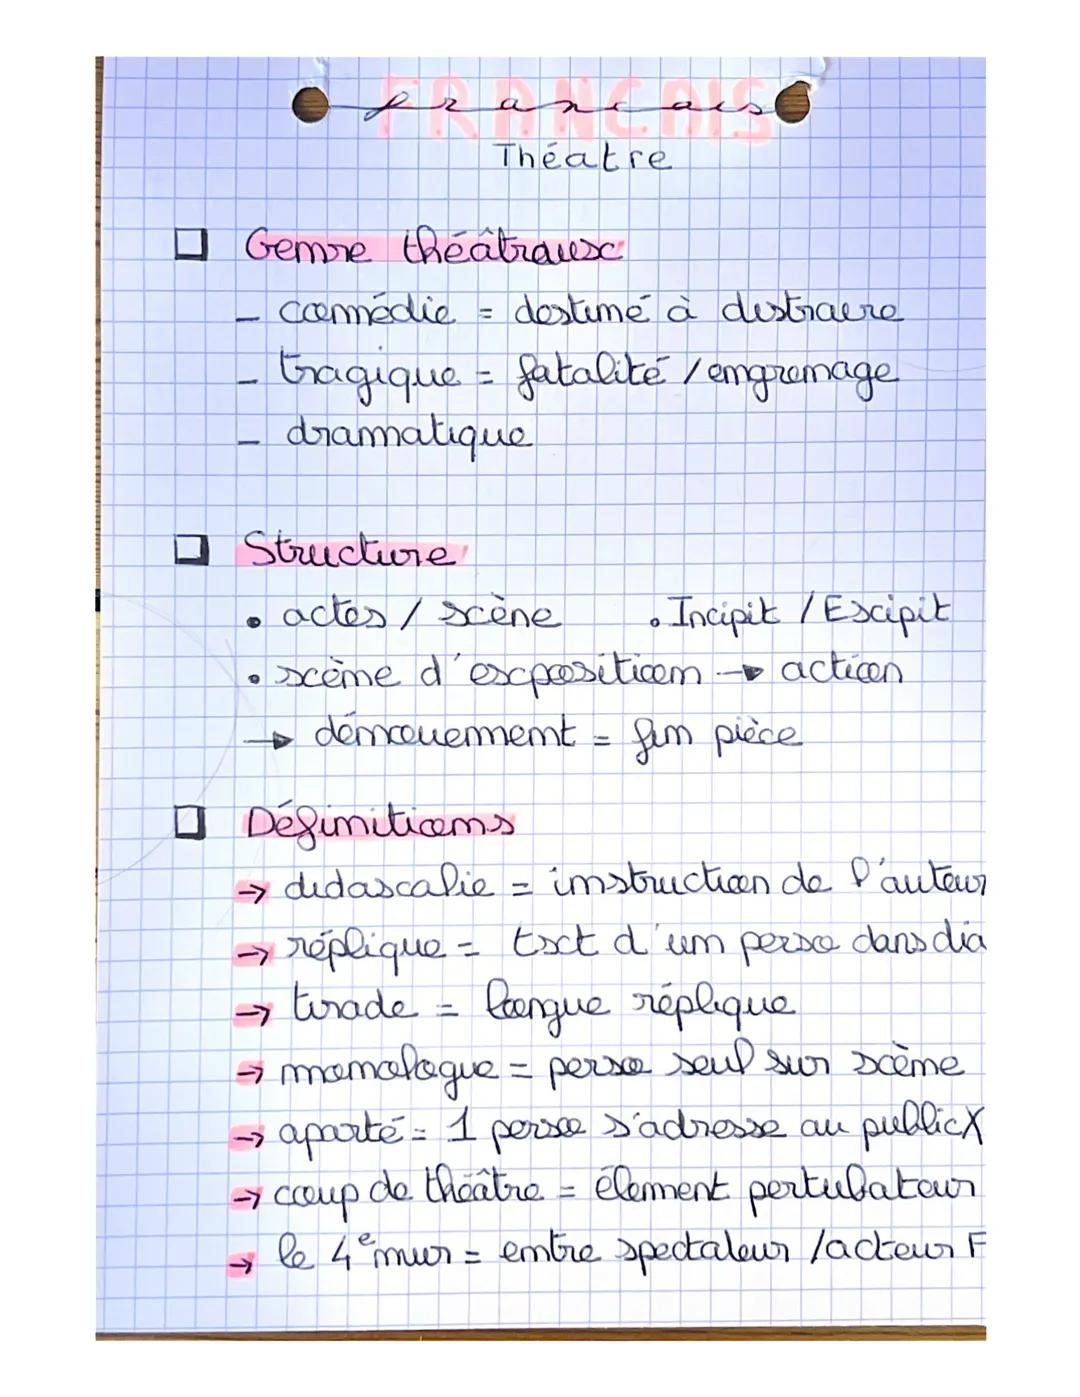 FRANCAIS
francais
Théatre
Genre théâtraux
- comédie = destiné à distraire
- tragique = fatalité / engrenage
- dramatique
Structure
• actes / scène • Incipit / Excipit
• scène d'exposition → action
→ dénouement = fin pièce
Définitions
→ didascalie = instruction de l'auteur
→ réplique = txt d'un perso dans dia
→ tirade = longue réplique
→ monologue = perso seul sur scène
→ aparté = 1 perso s'adresse au public X
→ coup de théâtre = élément pertubateur
→ le 4e mur = entre spectateur / acteur F